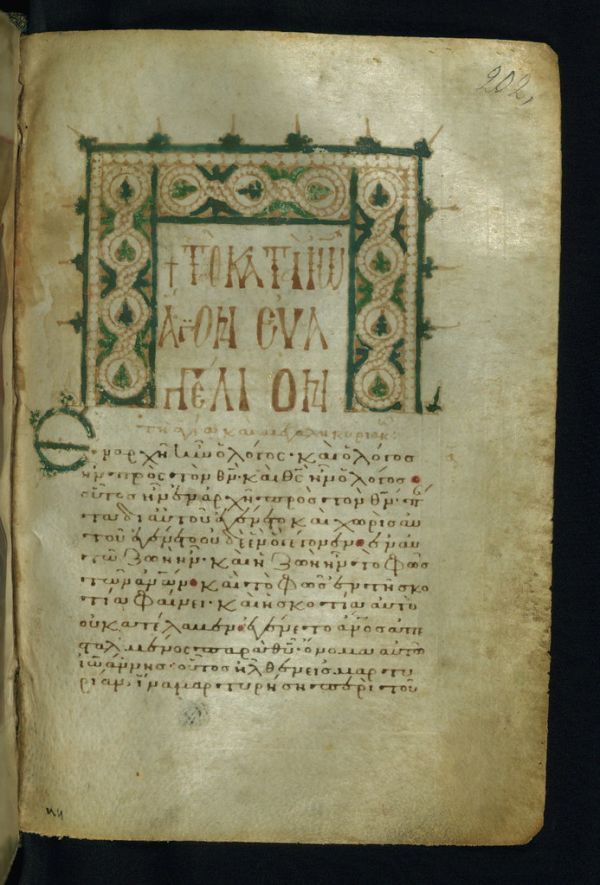 202,
† ΤῸ ΚΑΤᾺ ἸΩ
ΆΝΝΗΝ ΕΥΑ
ΓΓΈΛΙΟΝ
τῇ ἁγίᾳ καὶ μεγάλῃ κυριακ
Ἐν ἀρχῆ ἦν ὁ λόγος· καὶ ὁ λόγος
ἦν πρὸς τὸν θν̅· καὶ θς̅ ἦν ὁ λόγος
οὗτος ἦν ἐν ἀρχῆ πρὸς τὸν θν̅· π
τα δι αὐτοῦ ἐγένετο καὶ χωρὶς αυ
τοῦ ἐγένετο οὐδὲ ἓν ὃ γέγονεν ἐν αὐ
τῶ ζωὴ ἦν· καὶ ἡ ζωὴ ἦν τὸ φῶς
τῶν ἀνων̅· καὶ τὸ φῶς ἐν τῆ σκο
τία φαίνει· καὶ ἡ σκοτία αὐτὸ
οὐ κατέλαβεν· ἐγένετο ἀνος̅ ἀπε
σταλμένος παρὰ θυ̅· ὄνομα αὐτῶ
ἰωάννης· οὗτος ἦλθεν εἰς μαρτυ
ρίαν, ἵνα μαρτυρήση περὶ τοῦ